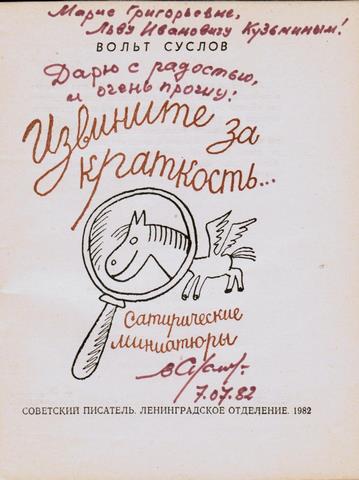 Марие Григорьевне,
Льву Ивановичу Кузьминым!
ВОЛЬТ СУСЛОВ
Дарю с радостью,
и очень прошу!
Извините за
краткость...
Сатирические
миниатюры
7.07.82
СОВЕТСКИЙ ПИСАТЕЛЬ. ЛЕНИНГРАДСКОЕ ОТДЕЛЕНИЕ. 1982